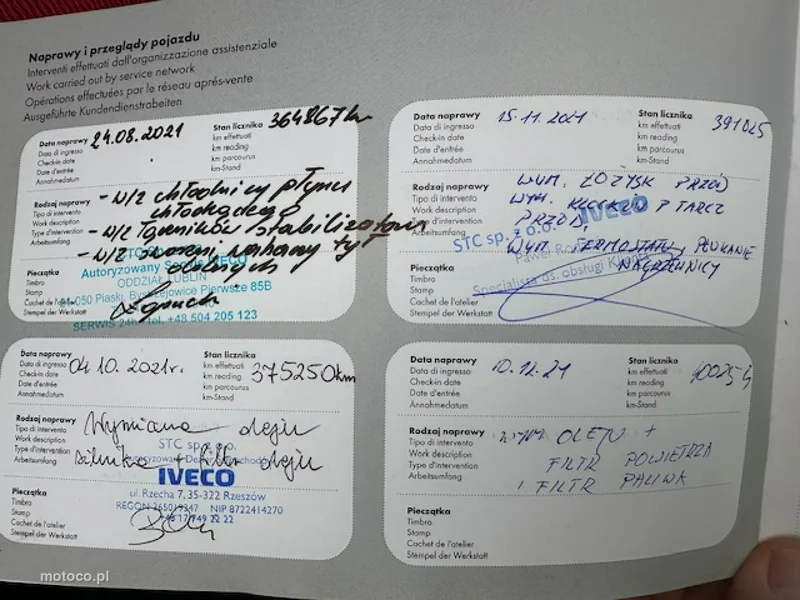 Naprawy i przeglądy pojazdu
Interventi effettuati dall'organizzazione assistenziale
Work carried out by service network
Opérations effectuées par le réseau après-vente
Ausgeführte Kundendienstarbeiten
Data naprawy 24.08.2021 Stan licznika 364867 km
Data di ingresso km effettuati
Check-in date km reading
Date d'entrée km parcourus
Annahmedatum km-Stand
Rodzaj naprawy - W/Z chłodnicy płynu
Tipo di intervento chłodzącego
Work description - W/Z łączników stabilizatora
Type d'intervention
Arbeitsumfang - W/Z sworzni wahaczy tył
dolnych
Autoryzowany Serwis IVECO
ODDZIAŁ LUBLIN
21-050 Piaski, Bystrzejowice Pierwsze 85B
SERWIS 24h Tel. +48 504 205 123
Pieczątka
Timbro
Stamp
Cachet de l'atelier
Stempel der Werkstatt
Data naprawy 04.10.2021r. Stan licznika 375250km
Data di ingresso km effettuati
Check-in date km reading
Date d'entrée km parcourus
Annahmedatum km-Stand
Rodzaj naprawy Wymiana oleju
Tipo di intervento
Work description silnika + filtr oleju
Type d'intervention
Arbeitsumfang
STC sp. z o.o.
IVECO
ul. Rzecha 7, 35-322 Rzeszów
REGON NIP 8722414270
Pieczątka
Timbro
Stamp
Cachet de l'atelier
Stempel der Werkstatt
Data naprawy 15.11.2021 Stan licznika
Data di ingresso km effettuati
Check-in date km reading
Date d'entrée km parcourus
Annahmedatum km-Stand
Rodzaj naprawy WYM. ŁOŻYSK PRZÓD
Tipo di intervento WYM. KLOCKÓW TARCZ
Work description PRZÓD,
Type d'intervention
Arbeitsumfang WYM. TERMOSTATU, PŁUKANIE
NAGRZEWNICY
IVECO
STC sp. z o.o.
Specjalista ds. obsługi Klienta
Pieczątka
Timbro
Stamp
Cachet de l'atelier
Stempel der Werkstatt
Data naprawy 10.12.21 Stan licznika
Data di ingresso km effettuati
Check-in date km reading
Date d'entrée km parcourus
Annahmedatum km-Stand
Rodzaj naprawy WYM OLEJU +
Tipo di intervento
Work description FILTR POWIETRZA
Type d'intervention
Arbeitsumfang FILTR PALIWA
Pieczątka
Timbro
Stamp
Cachet de l'atelier
Stempel der Werkstatt
motoco.pl